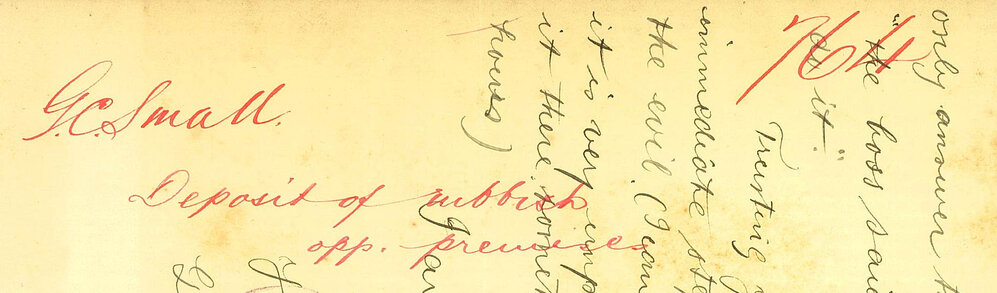 G.C. Small.
Deposit of rubbish
opp. premises
764
only answer t
"the boss sai
do it."
Trusting y
immediate ste
the evil. (I am
it is very imp
it there. somet
hours)